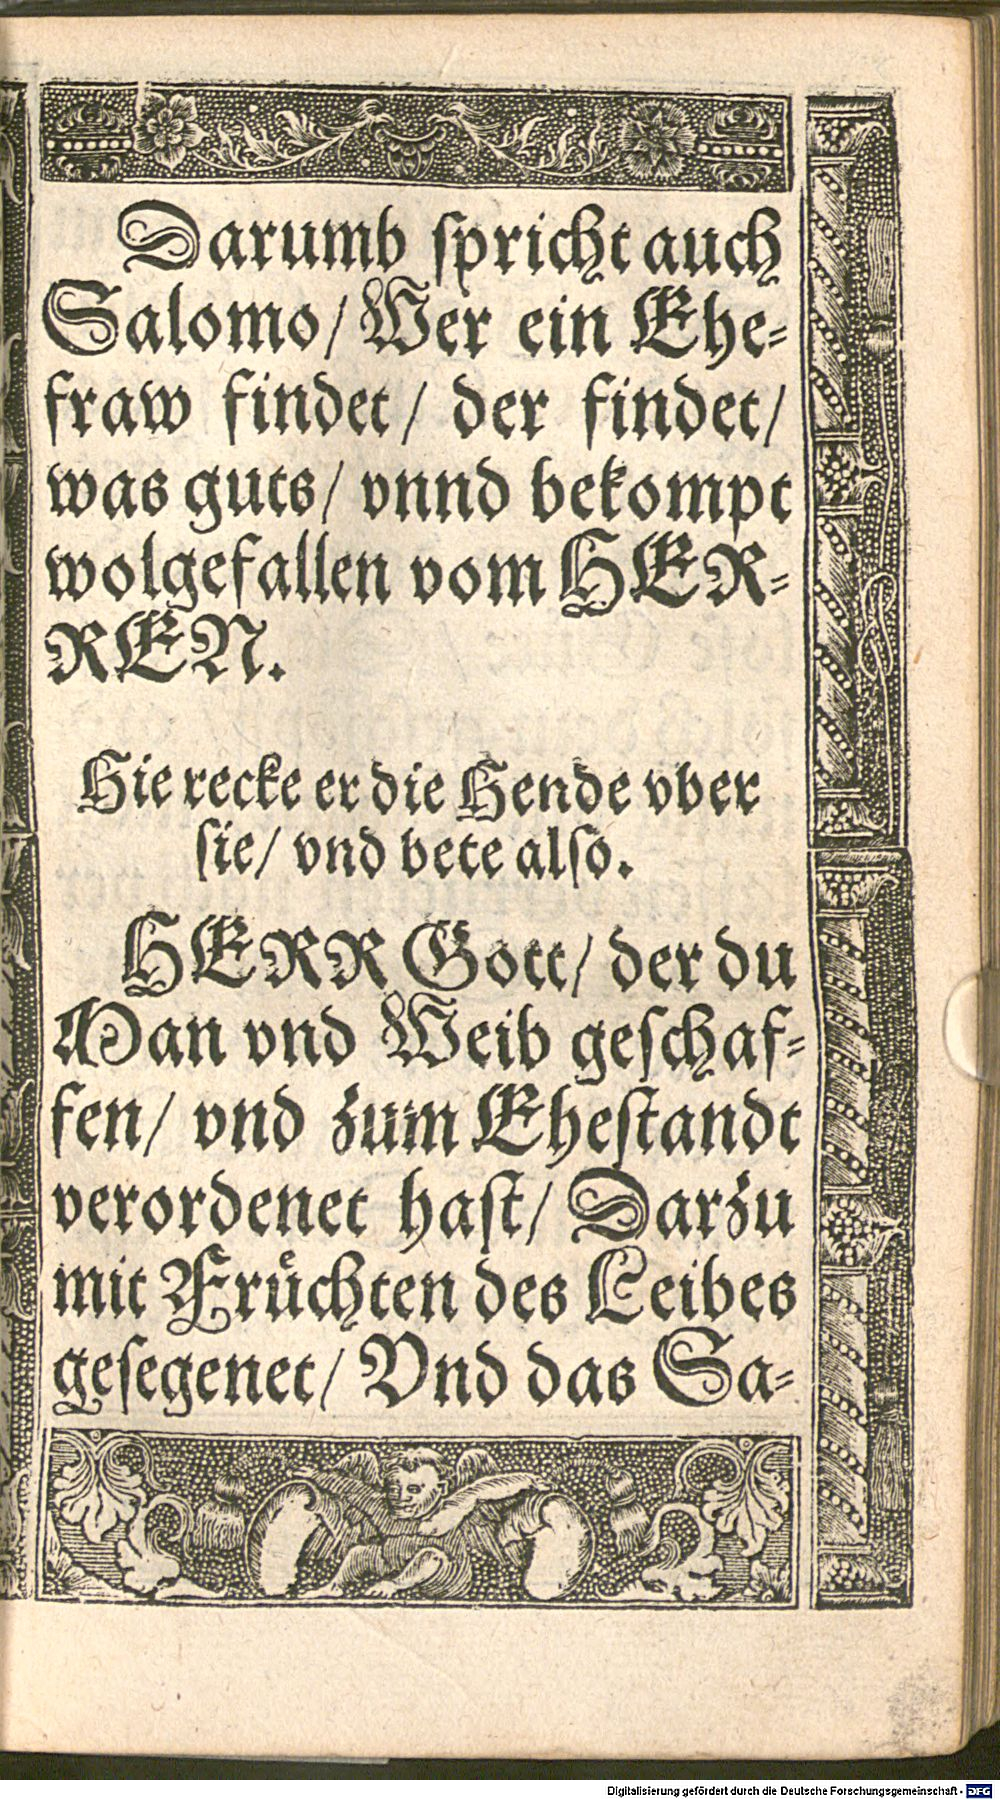 Darumb ſpricht auch
Salomo/ Wer ein Ehe-
fraw findet/ der findet/
was guts/ vnnd bekompt
wolgefallen vom HER-
REN.
Hie recke er die Hende vber
ſie/ vnd bete alſo.
HERR Gott/ der du
Man vnd Weib geſchaf-
fen/ vnd zum Eheſtandt
verordenet haſt/ Darzu
mit Früchten des Leibes
geſegenet/ Vnd das Sa-
Digitalisierung gefördert durch die Deutsche Forschungsgemeinschaft - DFG